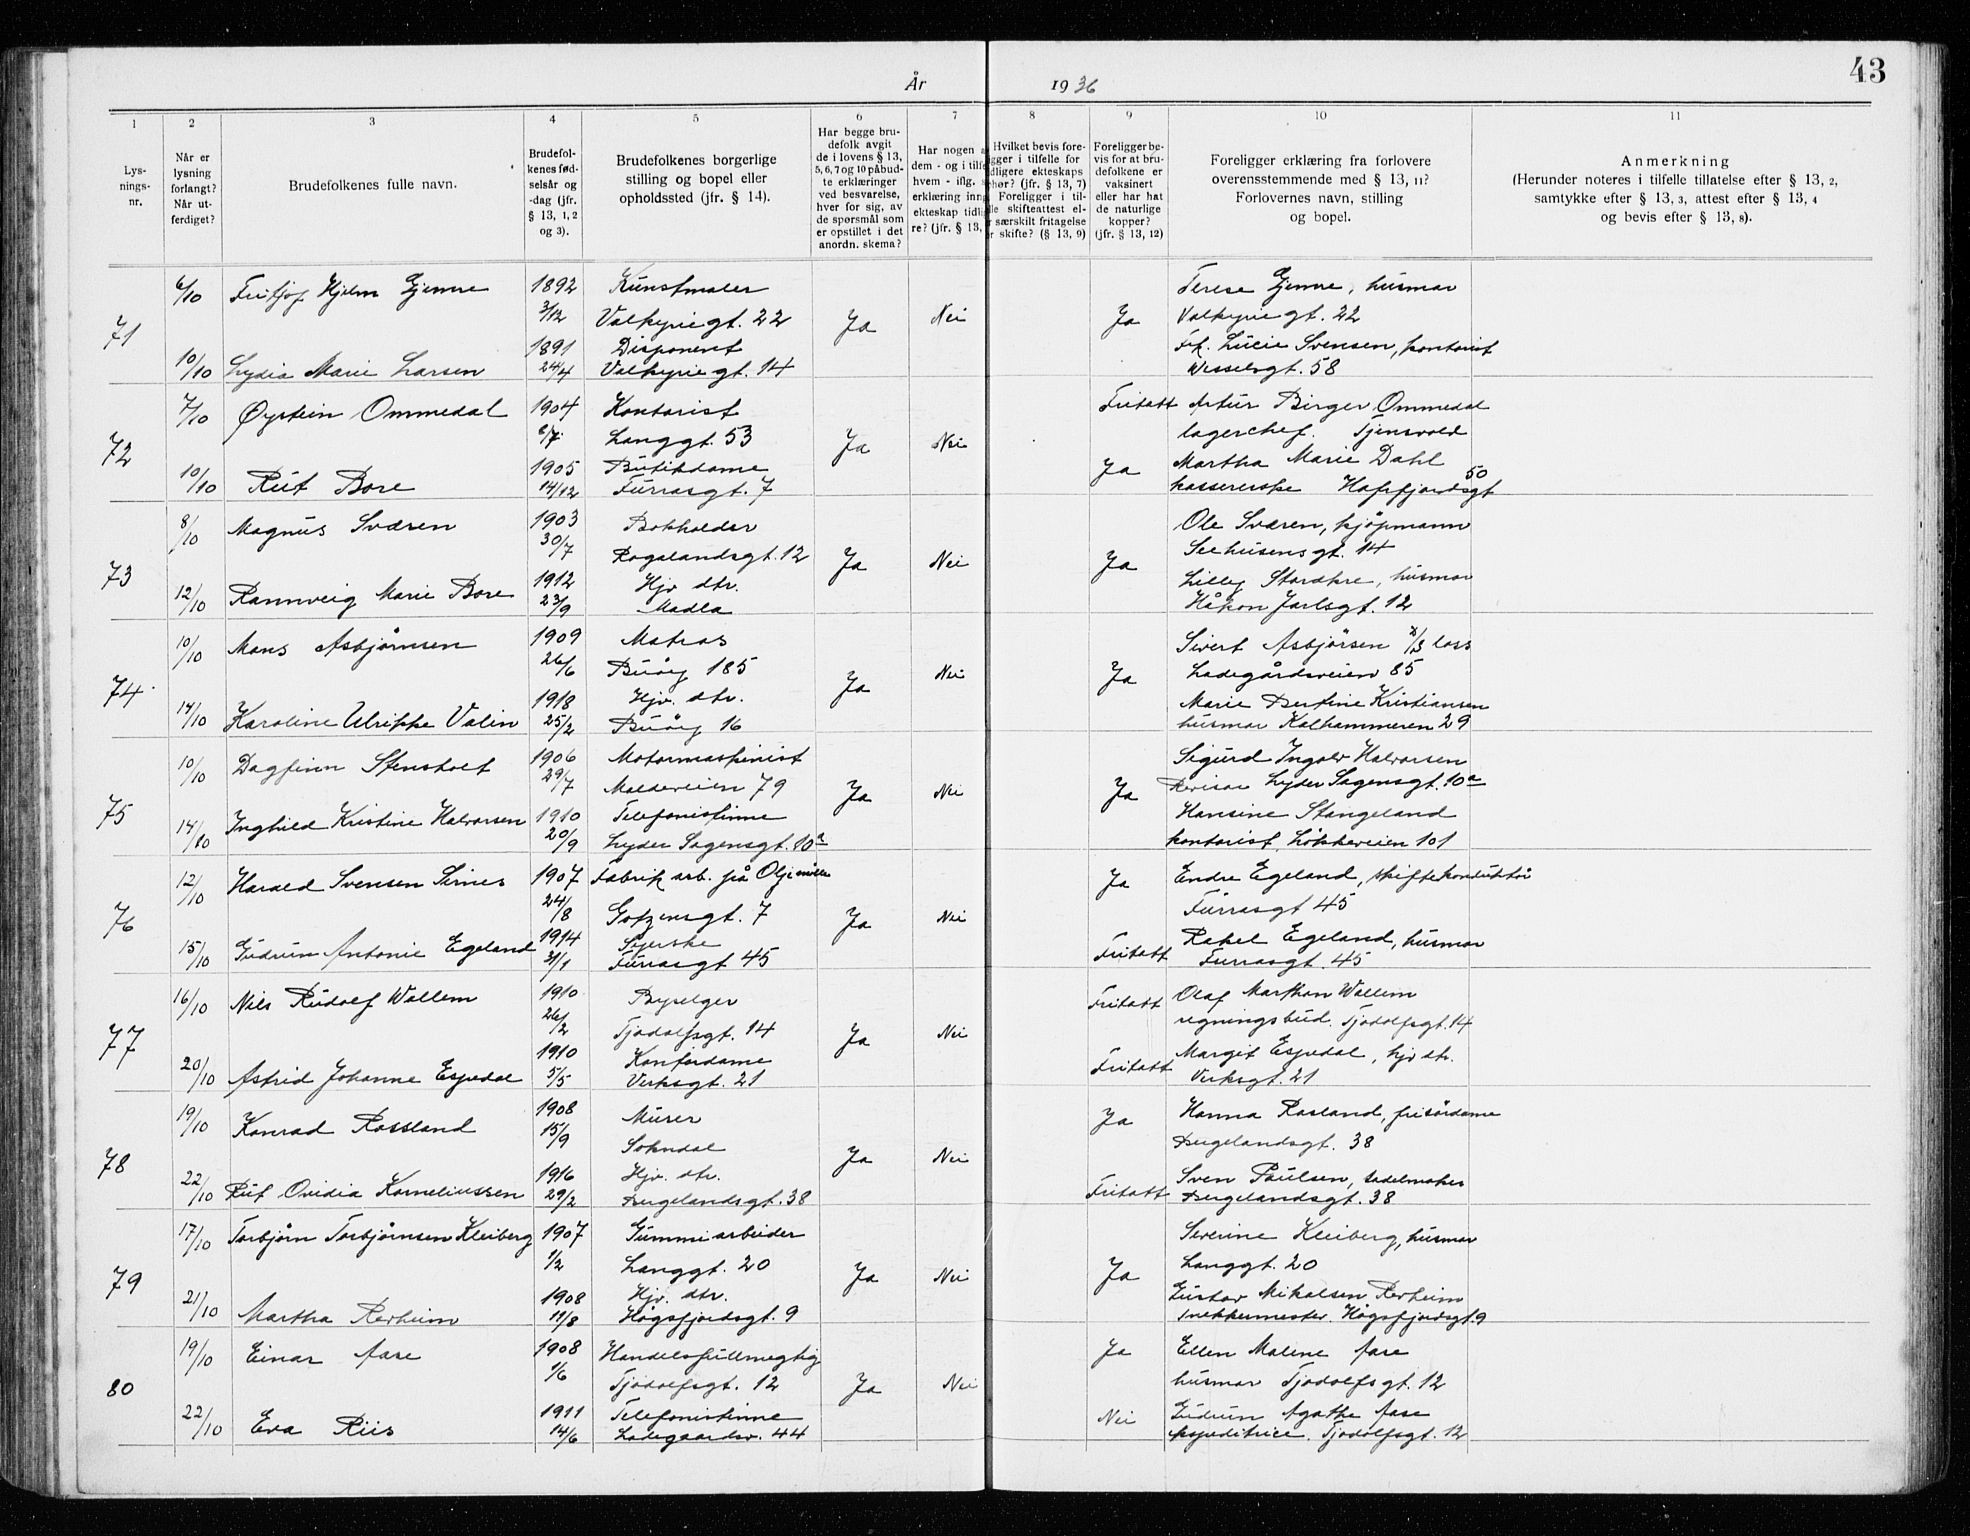 43
År 1936
1 2 3 4 5 6 7 8 9 10 11
Lys-
nings-
nr.
Når er
lysning
forlangt?
Når ut-
ferdiget?
Brudefolkenes fulle navn.
Brudefol-
kenes fød-
selsår og
-dag (jfr.
§ 13, 1, 2
og 3).
Brudefolkenes borgerlige
stilling og bopel eller
opholdssted (jfr. § 14).
Har begge bru-
defolk avgit
de i lovens § 13,
5, 6, 7 og 10 påbud-
te erklæringer
ved besvarelse,
hver for sig, av
de spørsmål som
er opstillet i det
anordn. skema?
Har nogen a
dem - og i tilfe
hvem - iflg. s
erklæring inng
ekteskap tidli
re? (jfr. § 13,
Hvilket bevis fore-
gger i tilfelle for
dligere ekteskaps
hør? (jfr. § 13, 7)
Foreligger i til-
lle skifteattest el-
r særskilt fritagelse
r skifte? (§ 13, 9)
Foreligger be-
vis for at bru-
defolkene er
vaksinert
eller har hat
de naturlige
kopper?
(jfr. § 13, 12)
Foreligger erklæring fra forlovere
overensstemmende med § 13, 11?
Forlovernes navn, stilling
og bopel.
Anmerkning
(Herunder noteres i tilfelle tillatelse efter § 13, 2,
samtykke efter § 13, 3, attest efter § 13, 4
og bevis efter § 13, 8).
71
6/10 Fritjof Hjelm Gjemre 1892 Kunstmaler Terese Gjemre, husmor
3/12 Valkyriegt. 22 Ja Nei Ja Valkyriegt. 22
1891 Disponent Frk. Lucie Svensen, kontorist
10/10 Lydia Marie Larsen 24/4 Valkyriegt. 14 Wesselsgt. 58
72
7/10 Øystein Ommedal 1904 Kontorist Fritatt Artur Birger Ommedal
6/7 Langgt. 53 Ja Nei lagerchef. Tjensvold
1905 Butikdame Ja Martha Marie Dahl
10/10 Rut Bore 14/12 Furrasgt. 7 kassererske Hafrfjordsgt 50
73
8/10 Magnus Sværen 1903 Bokholder Ole Sværen, kjøpmann
30/7 Rogalandsgt. 12 Ja Nei Ja Seehusensgt. 14
1912 Hjv dtr. Lilly Stordkre, husmor
12/10 Rannveig Marie Bore 23/9 Madla Håkon Jarlsgt. 12
74
10/10 Mons Asbjørnsen 1909 Matros Sivert Asbjörsen loss
26/6 Buöy 185 Ja Nei Ja Ladegårdsveien 85
1918 Hjv. dtr. Marie Bertine Kristiansen
14/10 Karoline Ulrikke Valin 25/2 Buöy 16 husmor Kalhammeren 29
75
10/10 Dagfinn Stenstolt 1906 Motormaskinist Sigurd Ingolv Halvorsen
29/7 Maldeveien 79 Ja Nei Ja Revisor Lyder Sagensgt. 10a
14/10 Inghild Kristine Halvorsen 1910 Telefonistinne Hansine Stangeland
20/9 Lyder Sagensgt. 10a kontorist, Lökkeveien 101
76
12/10 Harald Svensen Sirnes 1907 Fabrik arb. på Oljemølle Ja Endre Egeland, skiftekonduktör
24/8 Gotzensgt. 7 Ja Nei Furrasgt 45
15/10 Gudrun Antonie Egeland 1914 Syerske Fritatt Rakel Egeland, husmor
31/1 Furrasgt 45 Furrasgt. 45
77
16/10 Nils Rudolf Wallem 1910 Byselger Fritatt Olaf Marthon Wallem
26/2 Tjodolfsgt. 14 Ja Nei regningsbud. Tjodolfsgt. 14
1910 Kontordame Fritatt Margit Espedal, hjv dtr.
20/10 Astrid Johanne Espedal 5/5 Verksgt. 21 Verksgt. 21
78
19/10 Konrad Rossland 1908 Murer Ja Hanna Rosland, frisördame
15/9 Sokndal Ja Nei Augelandsgt. 38
1916 Hjv. dtr. Fritatt Sven Paulsen, sadelmaker
22/10 Rut Ovidia Korneliussen 29/2 Augelandsgt. 38 Augelandsgt. 38
79
17/10 Torbjørn Torbjørnsen Kleiberg 1907 Gummiarbeider Severine Kleiberg, husmor
1/2 Langgt. 20 Ja Nei Ja Langgt. 20
1908 Hjv. dtr. Gustav Mikalsen Rerheim
21/10 Martha Rerheim 11/8 Högsfjordsgt. 9 snekkermester. Högsfjordsgt. 9
80
19/10 Einar Aase 1908 Handelsfullmegtig Ja Ellen Malene Aase
1/6 Tjodolfsgt. 12 Ja Nei husmor Tjodolfsgt. 12
1911 Telefonistinne Nei Gudrun Agathe Aase
22/10 Eva Riis 14/6 Ladegaardsv. 44 ekspeditrice. Tjodolfsgt. 12